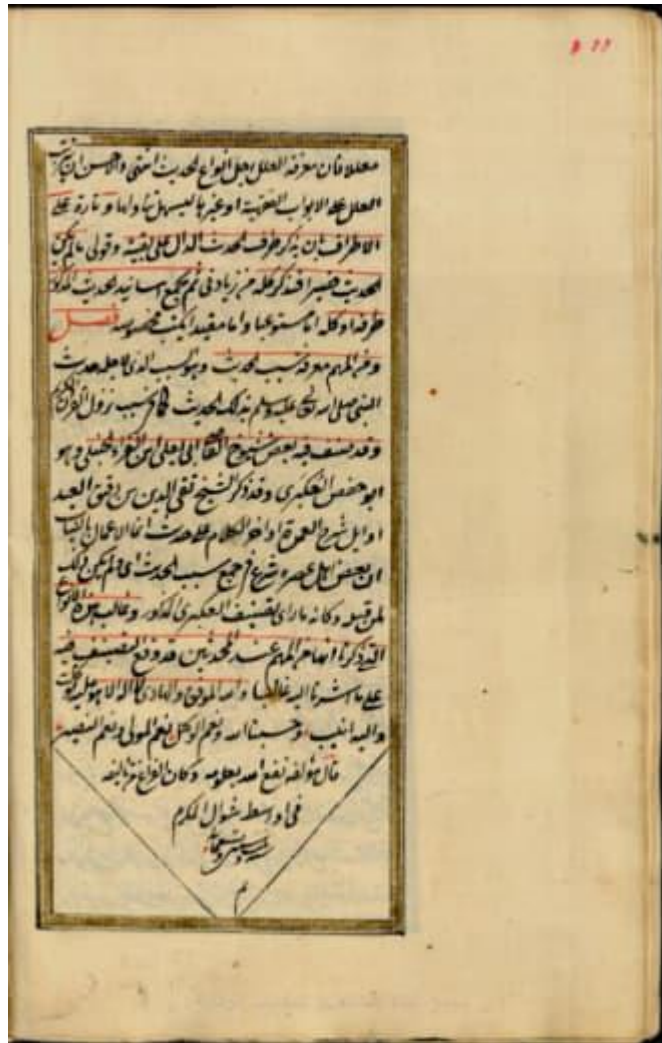 معللا فان معرفة العلل اجل انواع الحديث انتهى والاحسن ان يرتب
العلل على الابواب الفقهية او غيرها ليسهل تناولها وتارة على
الاطراف بان يذكر طرف الحديث الدال على بقيته وقولى ما لم يكن
الحديث قصيرا فيذكر كله من زيادتى ثم يجمع اسانيد الحديث المذكور
طرفه او كله اما مستوعبا واما مقيدا بكتب مخصوصة فصل
ومن المهم معرفة سبب الحديث وهو السبب الذى لاجله حدث
النبى صلى الله تعالى عليه وسلم بذلك الحديث كما فى سبب نزول القرآن الكريم
وقد صنف فيه بعض شيوخ القاضى ابى يعلى ابن الفراء الحنبلى وهو
ابو حفص العكبرى وقد ذكر الشيخ تقى الدين بن دقيق العيد
اوايل شرح العمدة اواخر الكلام على حديث انما الاعمال بالنيات
ان بعض اهل عصره شرع فى جمع سبب الحديث اى ولم يكن ذلك
لمن قبله وكانه ما راى تصنيف العكبرى المذكور وغالب هذه الانواع
التى ذكرنا انها من المهم عند المحدثين قد وقع التصنيف فيه
على ما اشرنا اليه غالبا والله الموفق والهادى لا اله الا هو عليه توكلت
واليه انيب وحسبنا الله ونعم الوكيل نعم المولى ونعم النصير
قال مؤلفه نفع الله بعلومه وكان الفراغ من تاليفه
فى اواسط شوال المكرم
م